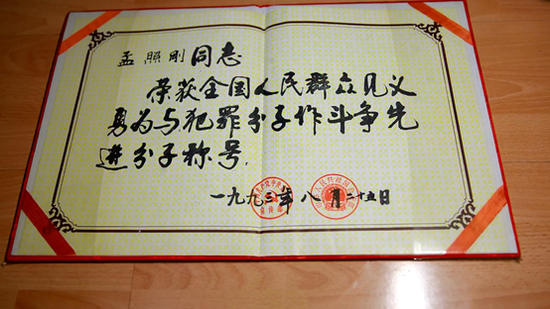 孟照刚同志
荣获全国人民群众见义
勇为与犯罪分子作斗争先
进分子称号.
一九九三年八月二十五日